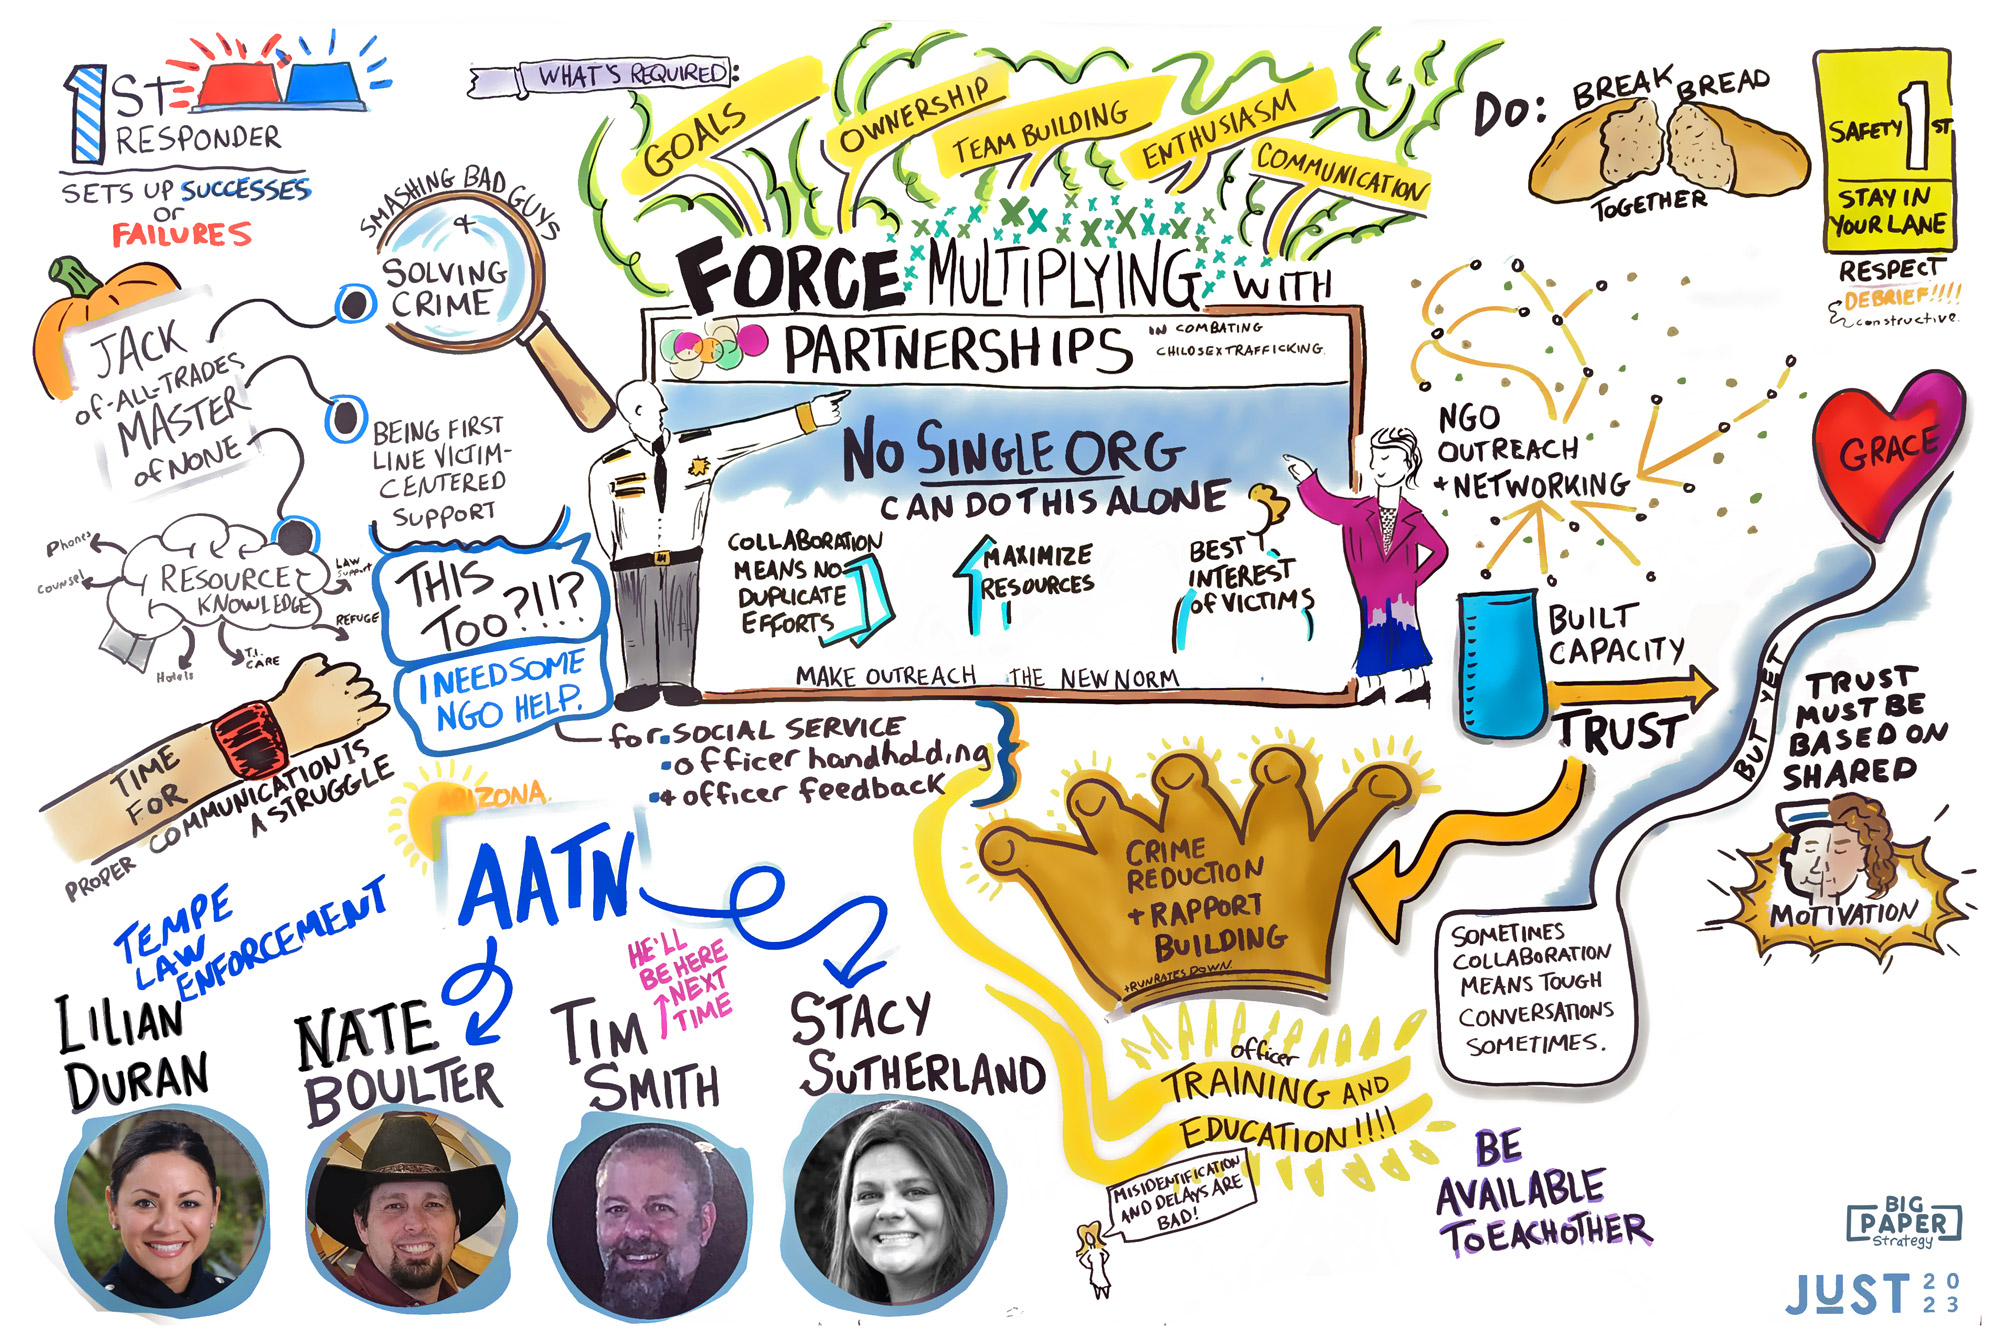 1ST
RESPONDER
SETS UP SUCCESSES
or
FAILURES
JACK
of-ALL-TRADES
MASTER
of NONE
SMASHING BAD GUYS
&
SOLVING
CRIME
BEING FIRST
LINE VICTIM-
CENTERED
SUPPORT
RESOURCE
KNOWLEDGE
Phones
Counsel
LAW
Support
REFUGE
T.I.
CARE
Hotels
THIS
TOO?!!?
I NEED SOME
NGO HELP.
for:
• SOCIAL SERVICE
• officer handholding
• + officer feedback
TIME
FOR
PROPER COMMUNICATION IS
A STRUGGLE
WHAT'S REQUIRED:
GOALS
OWNERSHIP
TEAM BUILDING
ENTHUSIASM
COMMUNICATION
FORCE MULTIPLYING WITH
PARTNERSHIPS
IN COMBATING
CHILD SEX TRAFFICKING.
NO SINGLE ORG
CAN DO THIS ALONE
COLLABORATION
MEANS NO
DUPLICATE
EFFORTS
MAXIMIZE
RESOURCES
BEST
INTEREST
of VICTIMS
MAKE OUTREACH THE NEW NORM
DO:
BREAK BREAD
TOGETHER
SAFETY 1ST
STAY IN
YOUR LANE
RESPECT
DEBRIEF!!!!
constructive.
NGO
OUTREACH
+ NETWORKING
BUILT
CAPACITY
TRUST
GRACE
BUT YET
SOMETIMES
COLLABORATION
MEANS TOUGH
CONVERSATIONS
SOMETIMES.
TRUST
MUST BE
BASED ON
SHARED
MOTIVATION
CRIME
REDUCTION
+ RAPPORT
BUILDING
+RUN RATES DOWN.
officer
TRAINING AND
EDUCATION!!!!
MISIDENTIFICATION
AND DELAYS ARE
BAD!
BE
AVAILABLE
TO EACH OTHER
ARIZONA.
AATN
TEMPE
LAW
ENFORCEMENT
LILIAN
DURAN
NATE
BOULTER
TIM
SMITH
HE'LL
BE HERE
NEXT
TIME
STACY
SUTHERLAND
BIG
PAPER
Strategy
JUST 2023